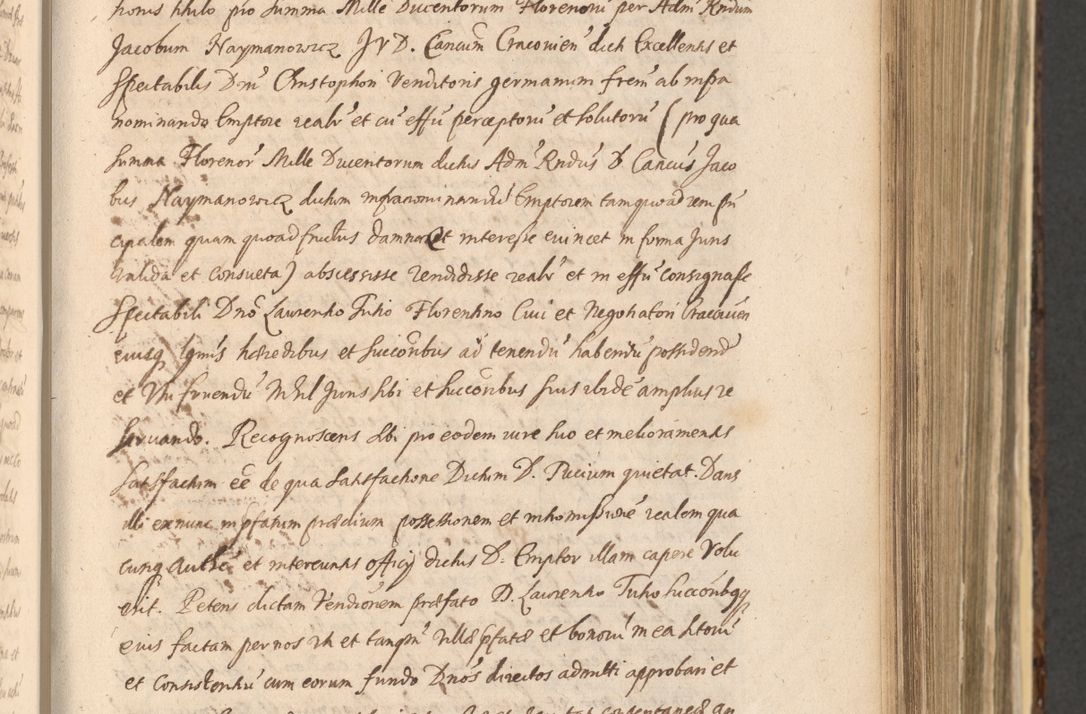 honis titulo pro summa Mille Ducentorum Florenorũ per Adm̃ Rndum
Jacobum Naymanowicz J V D. Cancum̃ Cracovien̆ dicti Excellentis et
Spectabilis Dnĩ Christophori Venditoris germanum frem̃ ab infra
nominando Emptore realr̃ et cũ effũ perceptorũ et solutorũ (pro qua
summa Florenor̃ Mille Ducentorum dictus Adm̃ Rndus̃ D Cancus̃ Jaco
bus Naymanowicz dictum infranominandũ Emptorem tam quoad rem prñ
cipalem quam quoad fructus damna et interesse evincet in forma Juris
valida et consueta) abscessisse vendidisse realr̃ et in effũ consignasse
Spectabili Dnõ Laurentio Tutio Florentino Civi et Negotiatori Cracovien̆
eiusq̃ lgmis̃ hæredibus et succoribus̃ ad tenendũ habendũ possidendũ
et Uti fruendũ Nihil Juris sibi et succoribus̃ suis ibidẽ amplius re
servando. Recognoscens sibi pro eodem iure suo et melioramentis
satisfactum eẽ de qua satisfactione Dictum D. Tucium quietat. Dans
illi ex nunc in p̃fatum prædium possessionem et intromissionẽ realem qua
cunq̃ authẽ et interventu officij dictus D. Emptor illam capere Volu
erit. Petens dictam Venditionem præfato D. Laurentio Tutio succoribq̃
eius factam per nos uti et tanqm̃ villæ p̃fatæ et bonorũ in ea sitorũ
et Consistentiũ cum eorum fundo Dnõs directos admitti approbari et